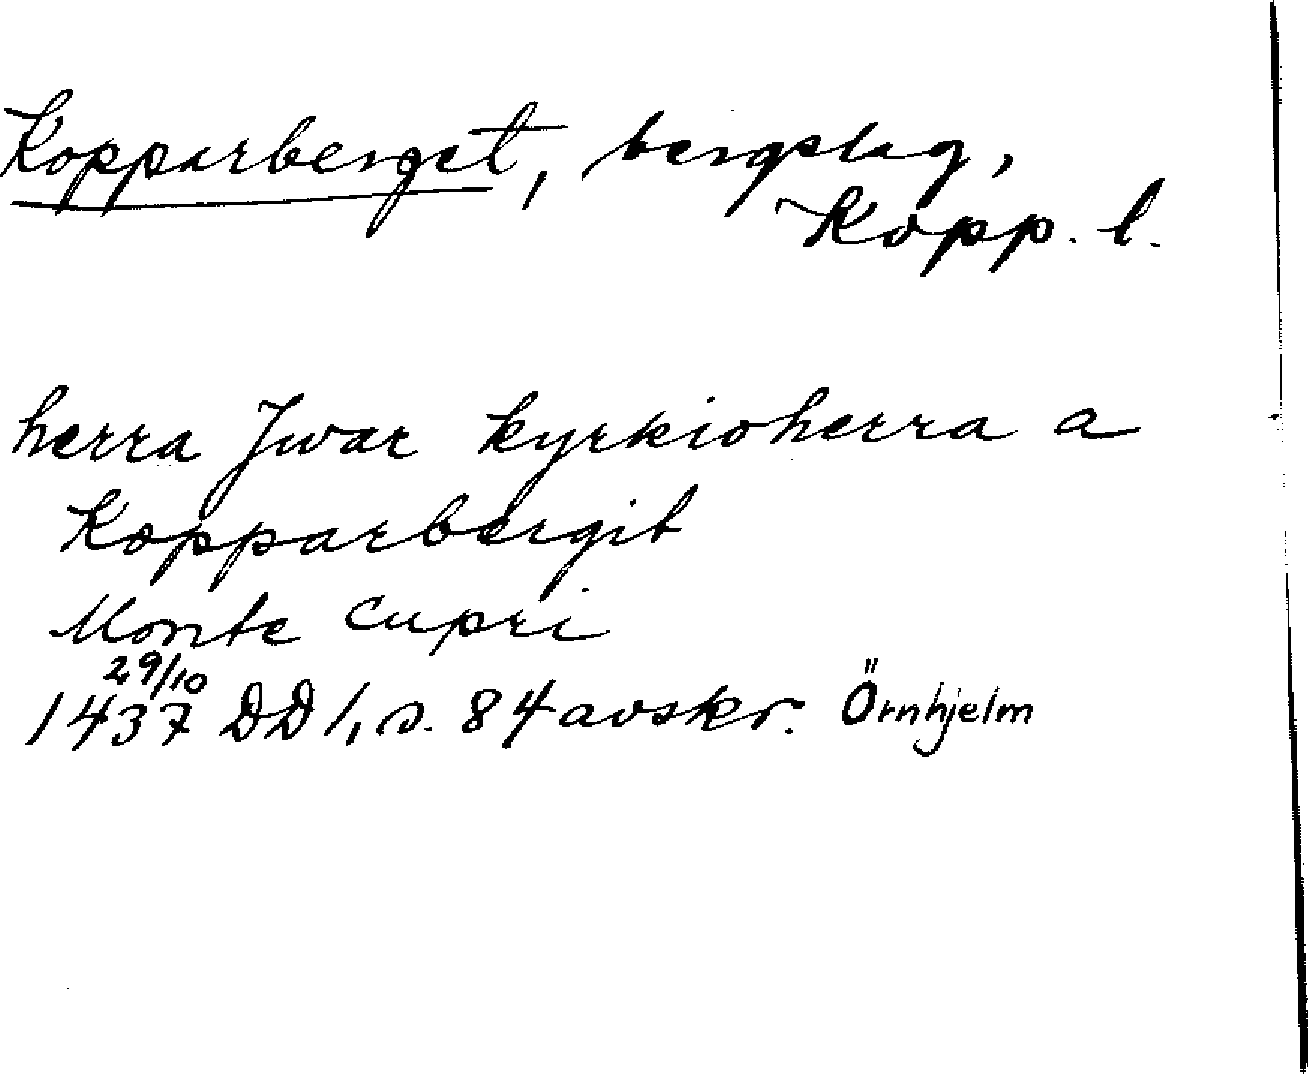 Kopparberget, bergslag,
Kopp. l.
herra Jwar kyrkioherra a
Kopparbergit
Monte Cupri
29/10
1437 DD 1, s. 84 avskr. Örnhjelm